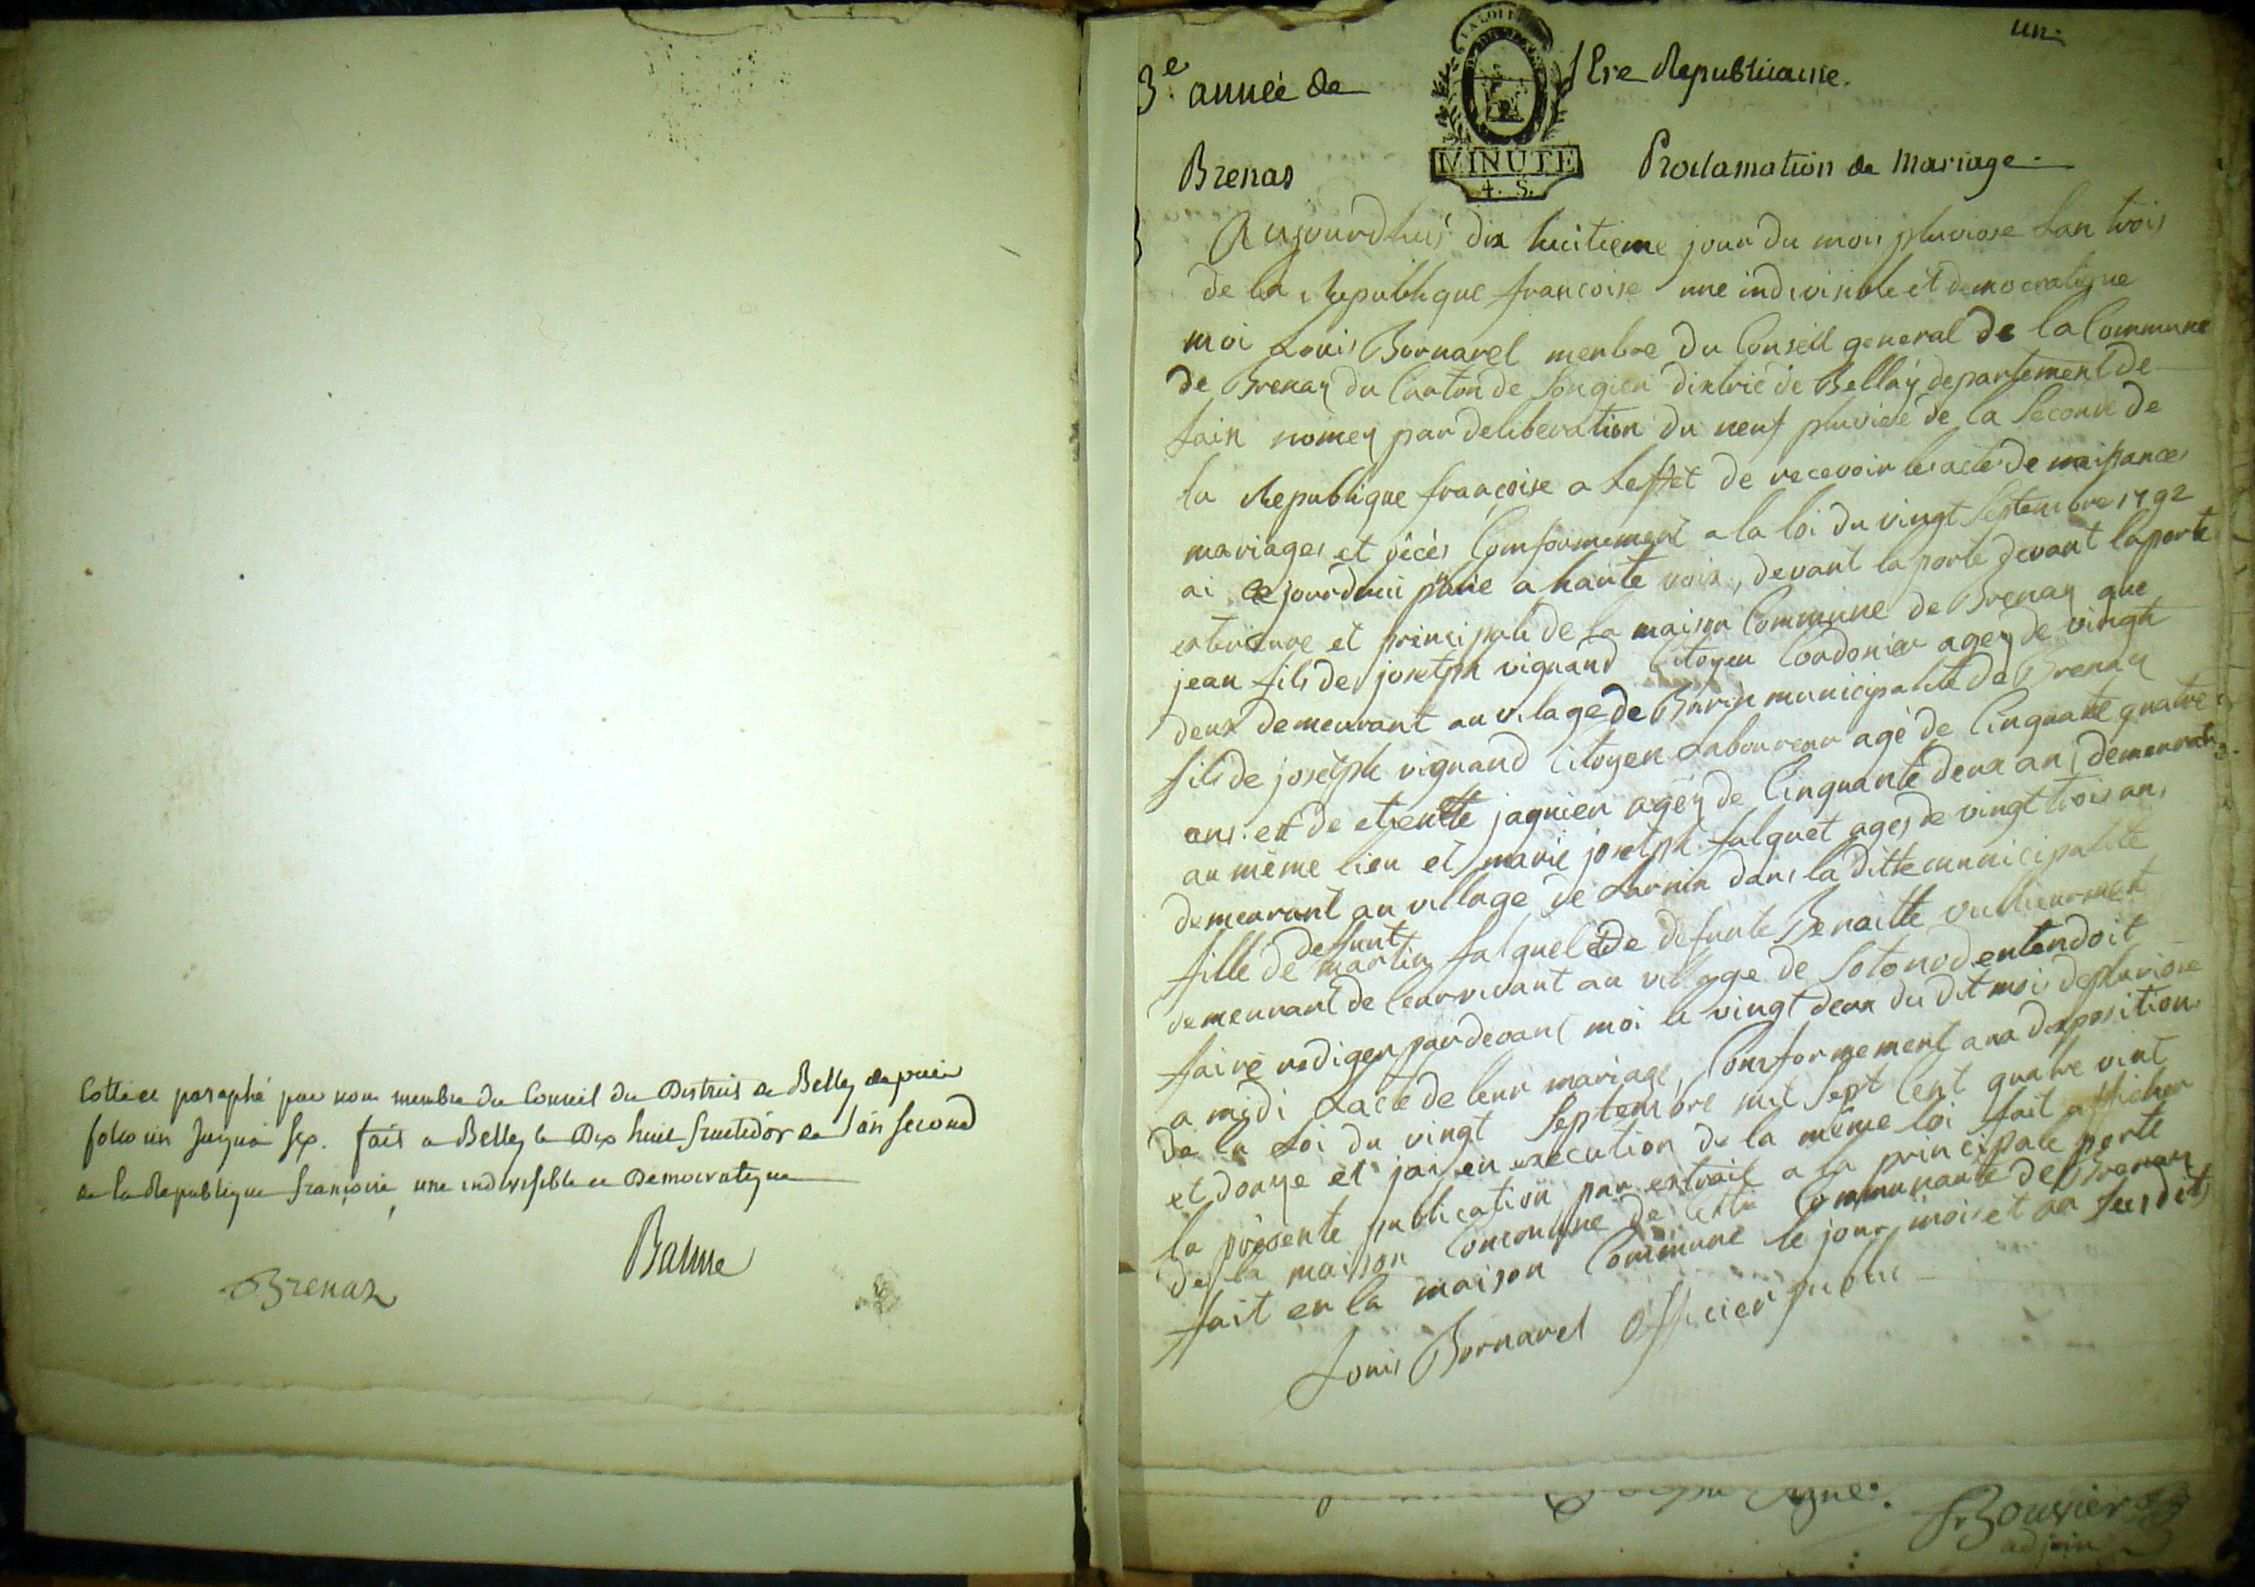 Cotté et paraphé par nous membre du Conseil du District de Belley depuis
folio un jusqu'a six. fait a Belley le Dix huit fructidor de l'an second
de la Republique françoise, une indivisible et Democratique
Balme
Brenaz
un
3e année de l'Ere Republicaine.
MINUTE
4. S.
Brenas Proclamation de Mariage
Aujourdhuÿ dix huitieme jour du mois pluviose Lan trois
de la Republique francoise une indivisible et democratique
moi Louis Bornarel menbre du Conseill general de la Commune
de Brenaz du Canton de Songieu distric de Belläy departement de
Lain nomez par deliberation du neuf pluviose de la Seconde de
la Republique françoise a Leffet de recevoir les actes de naissances
mariages et décès Comformement a la loi du vingt Septembre 1792
ai cejourdhui a haute voix, devant la porte devant la porte
exterieure et principale de la maison Commune de Brenaz que
jean fils de joseph vignand Citoyen Cordonier agez de vingt
deux demeurant au vilage de municipalité de Brenaz
fils de joseph vignand Citoyen Laboureur agé de Cinquante quatre
ans et de jaguier agéz de Cinquante deux ans demeurant
au même lieu et marie joseph falquet agez de vingt trois ans
demeurant au village de dans la ditte municipalité
fille de deffunt martin falquet et de defunte Benoitte
demeurant de leur vivant au village de Sotonod entendoit
faire rediger pardevant moi le vingt deux du dit mois de pluviose
a midi Lacte de leur mariage, Comformement aux dispositions
de la Loi du vingt Septembre mil Sept Cent quatre vint
et douze et jai en execution de la même loi fait afficher
la présente publication par extrait a la principale porte
de la maison Commune de Cette Communauté de Brenaz
fait en la maison Commune le jour mois et an susdits
Louis Bornarel Officier public
signé.
Bouvier
adjoin